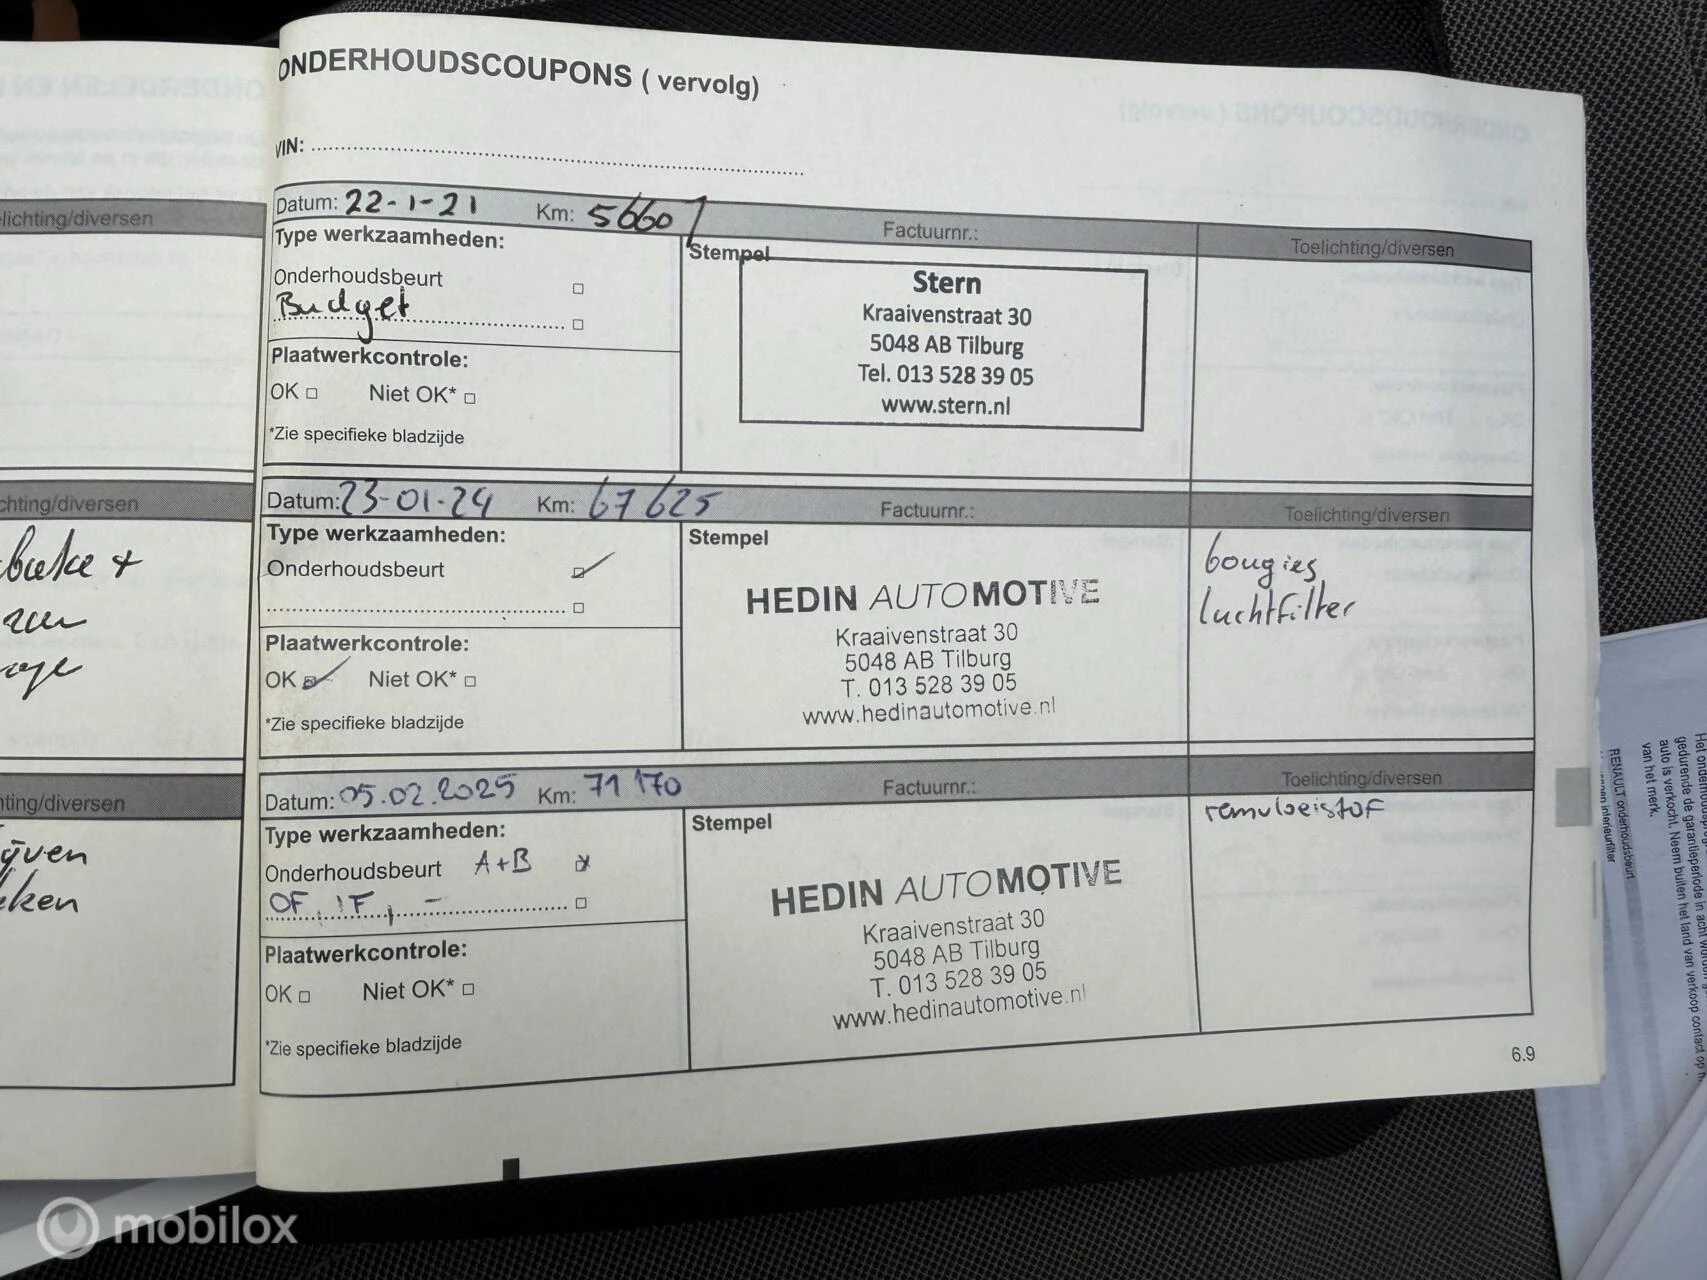 ONDERHOUDSCOUPONS ( vervolg)
VIN:
Datum: 22-1-21 Km: 56607 Factuurnr.: Toelichting/diversen
Type werkzaamheden:
Stempel
Onderhoudsbeurt
Budget
Plaatwerkcontrole:
OK Niet OK*
*Zie specifieke bladzijde
Stern
Kraaivenstraat 30
5048 AB Tilburg
Tel. 013 528 39 05
www.stern.nl
Datum: 23-01-24 Km: 67625 Factuurnr.: Toelichting/diversen
Type werkzaamheden:
Stempel
Onderhoudsbeurt
Plaatwerkcontrole:
OK Niet OK*
*Zie specifieke bladzijde
HEDIN AUTOMOTIVE
Kraaivenstraat 30
5048 AB Tilburg
T. 013 528 39 05
www.hedinautomotive.nl
bougies
luchtfilter
Datum: 05.02.2025 Km: 71170 Factuurnr.: Toelichting/diversen
Type werkzaamheden:
Stempel
Onderhoudsbeurt A+B
OF, IF, -
Plaatwerkcontrole:
OK Niet OK*
*Zie specifieke bladzijde
HEDIN AUTOMOTIVE
Kraaivenstraat 30
5048 AB Tilburg
T. 013 528 39 05
www.hedinautomotive.nl
remvloeistof
6.9
lichting/diversen
chting/diversen
ting/diversen
ken
RENAULT onderhoudsbeurt
interieurfilter
gedurende de garantieperiode in acht
auto is verkocht. Neem buiten het land van verkoop contact op
van het merk.
mobilox